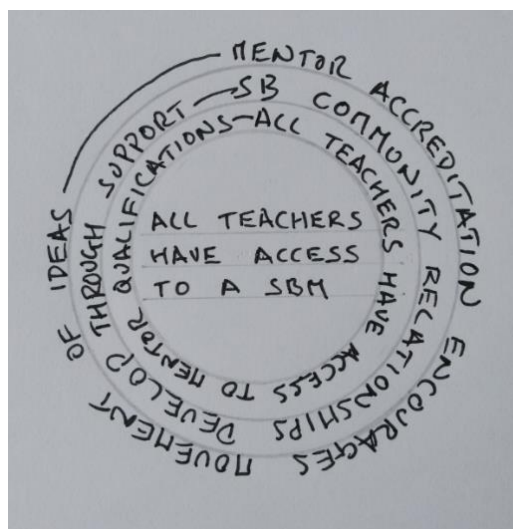 MENTOR ACCREDITATION ENCOURAGES MOVEMENT OF IDEAS
SB COMMUNITY RELATIONSHIPS DEVELOP THROUGH SUPPORT
ALL TEACHERS HAVE ACCESS TO MENTOR QUALIFICATIONS
ALL TEACHERS
HAVE ACCESS
TO A SBM